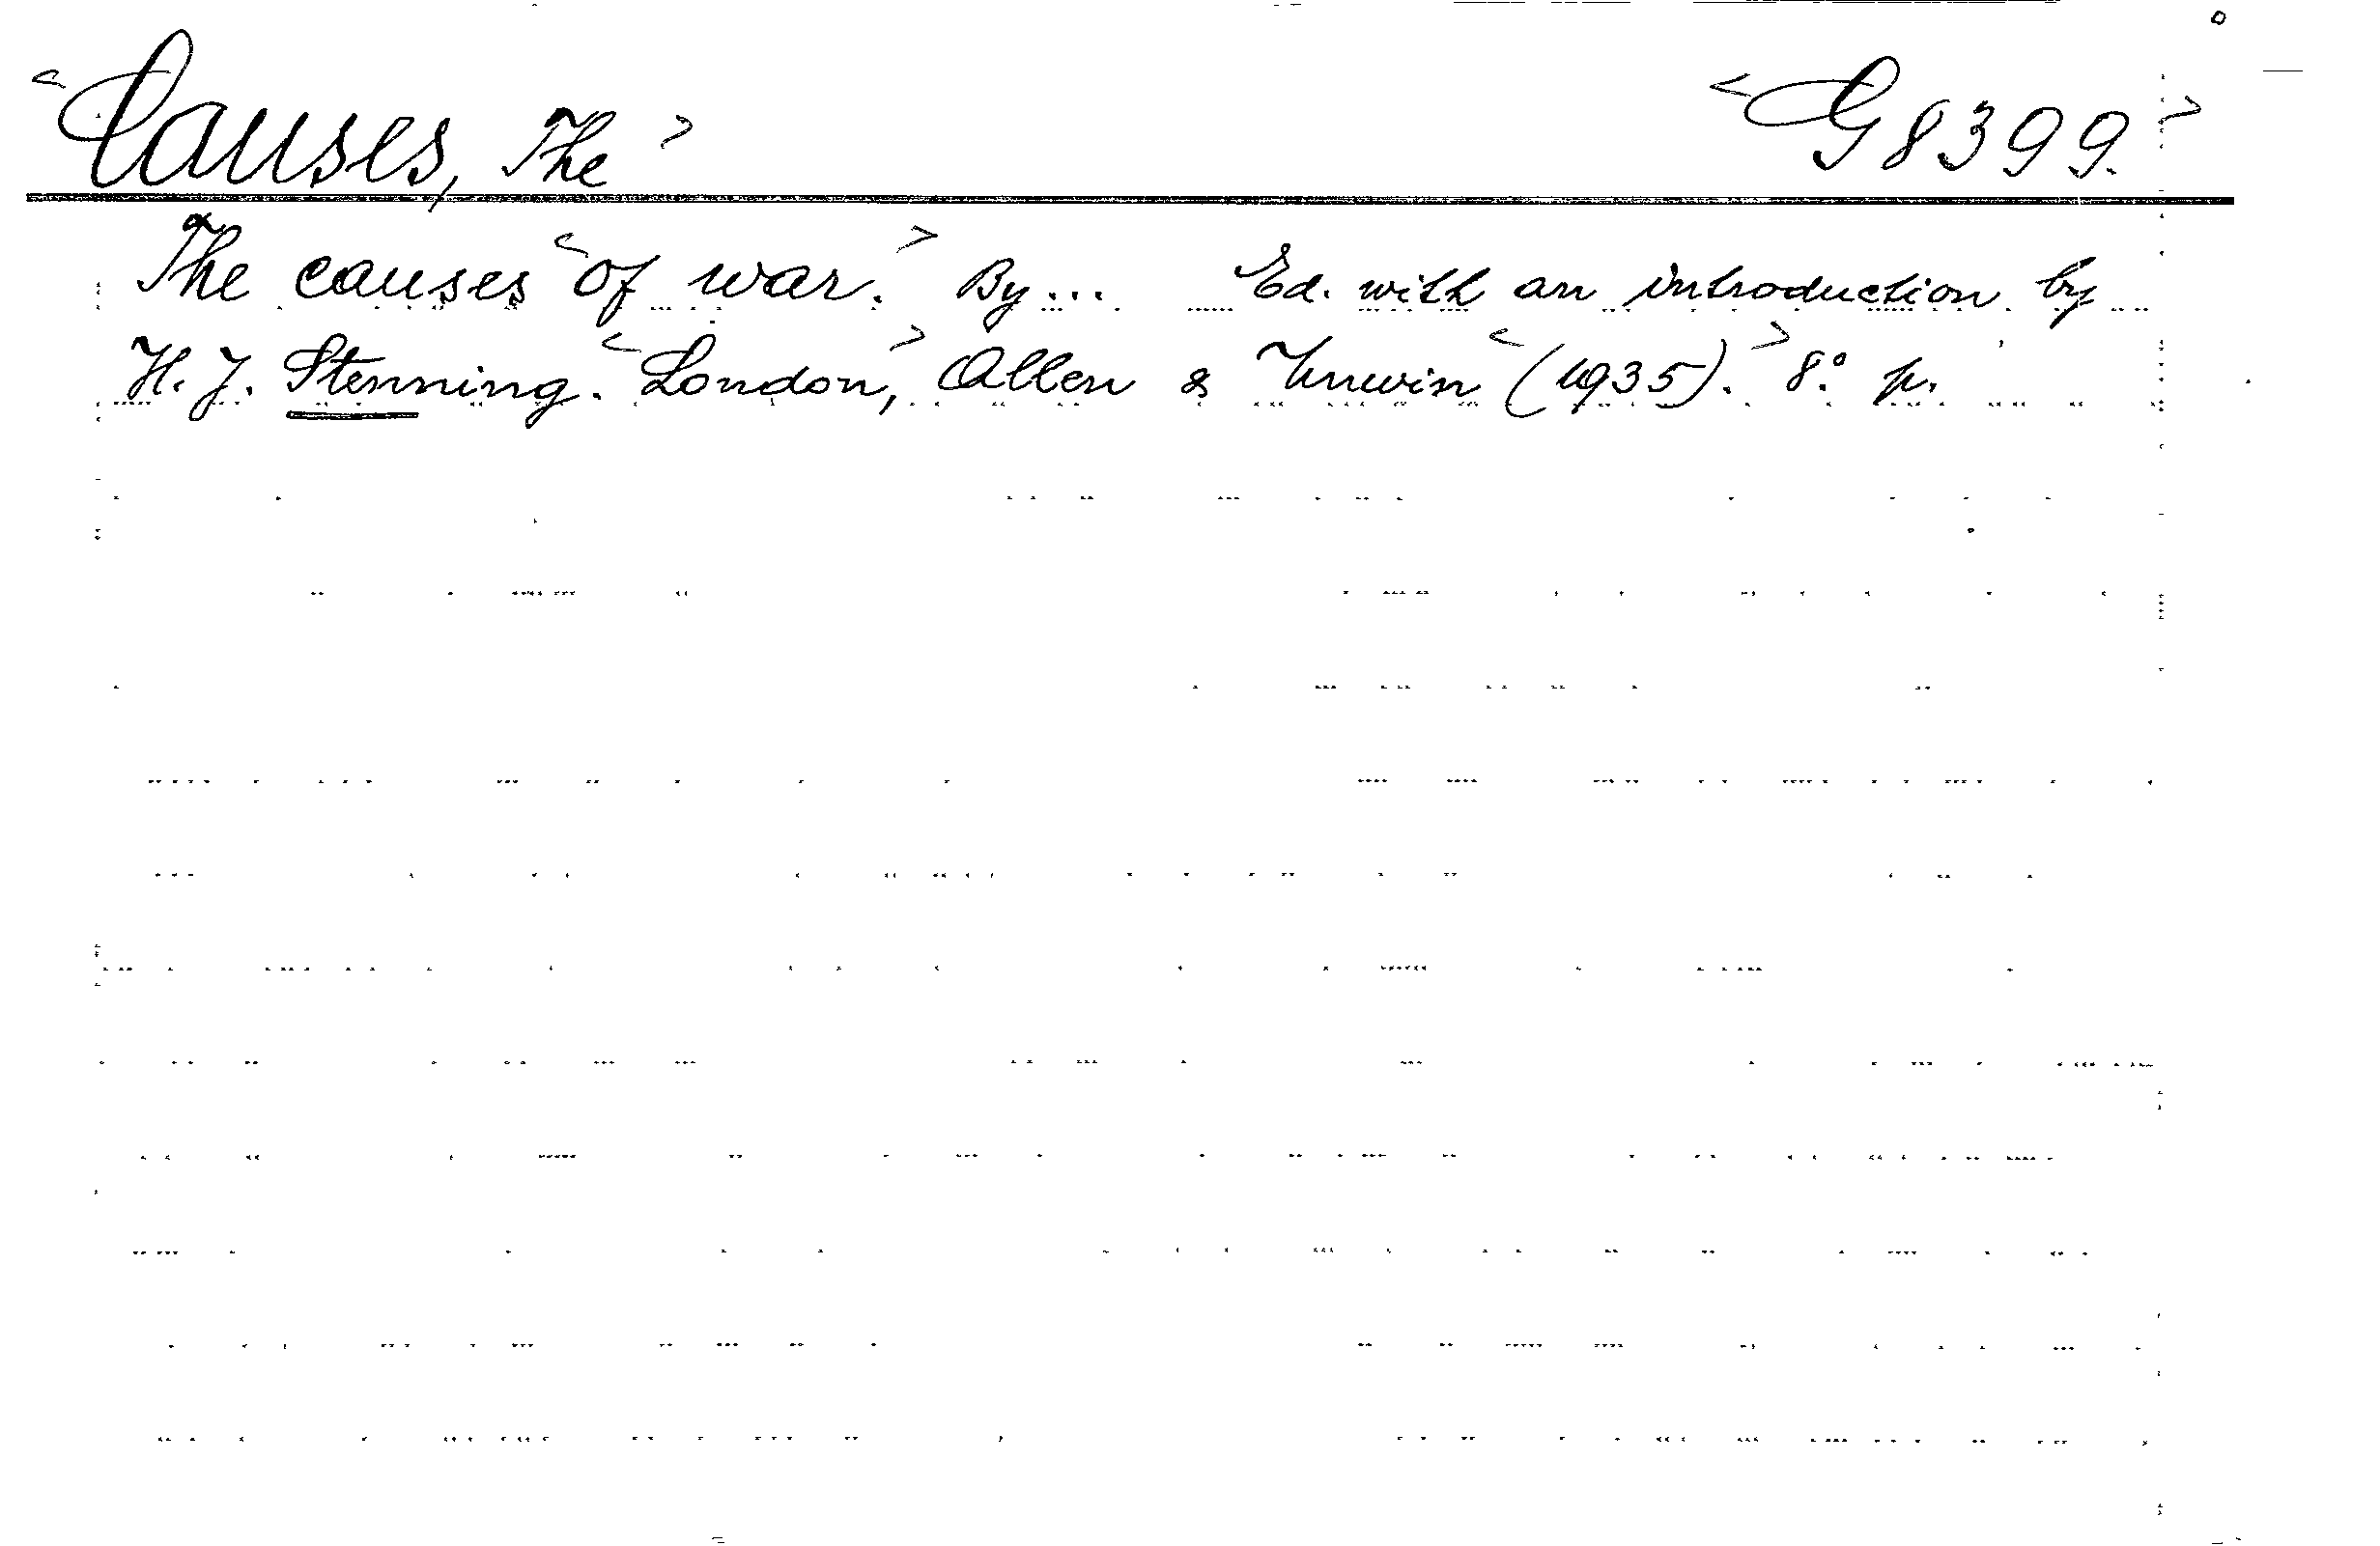 <Causes, The> <G8399.>
The causes <of war.> By... Ed. with an introduction by
H. J. Stenning. <London,> Allen & Unwin <(1935).> 8° p.